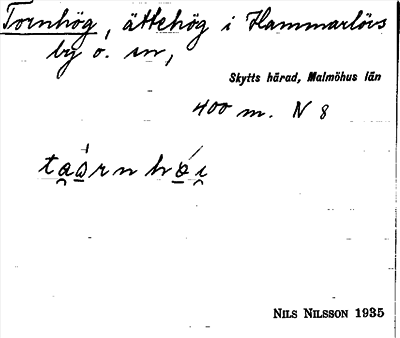 Tornhög, ättehög i Hammarlövs
by o. sn,
Skytts härad, Malmöhus län
400 m. N 8
NILS NILSSON 1935